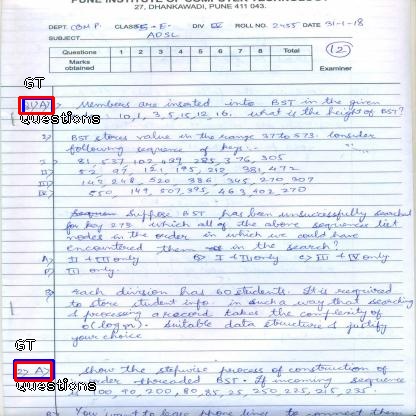 PUNE INSTITUTE OF COMPUTER TECHNOLOGY
27, DHANKAWADI, PUNE 411 043.
DEPT. COMP. CLASS S.E. DIV IV ROLL NO. 2455 DATE 31-1-18
SUBJECT ADSL
Questions 1 2 3 4 5 6 7 8 Total
Marks obtained
12
Examiner
GT
Questions
Members are inserted into BST in the given
10, 1, 3, 5, 15, 12, 16. what is the height of BST?
2) BST stores value in the range 37 to 573. Consider
following sequence of keys.
I) 81, 537, 102, 439, 285, 376, 305
II) 52, 97, 121, 195, 242, 381, 472
III) 142, 248, 520, 386, 345, 270, 307
IV) 550, 149, 507, 395, 463, 402, 270
Suppose BST has been unsuccessfully searched
for key 273. which all of the above sequences list
nodes in the order in which we could have
encountered them in the search?
A) II + III only b) I + III only c) III + IV only
D) III only.
B) Each division has 60 students. It is required
to store student info. in such a way that searching
& processing a record takes the complexity of
O(log n). Suitable data structure & justify
your choice
GT
Questions
2) A) show the stepwise process of construction of
threaded BST. If incoming sequence
is 100, 90, 200, 80, 85, 25, 250, 225, 215, 235.
B) You want to lease phone lines to connect them